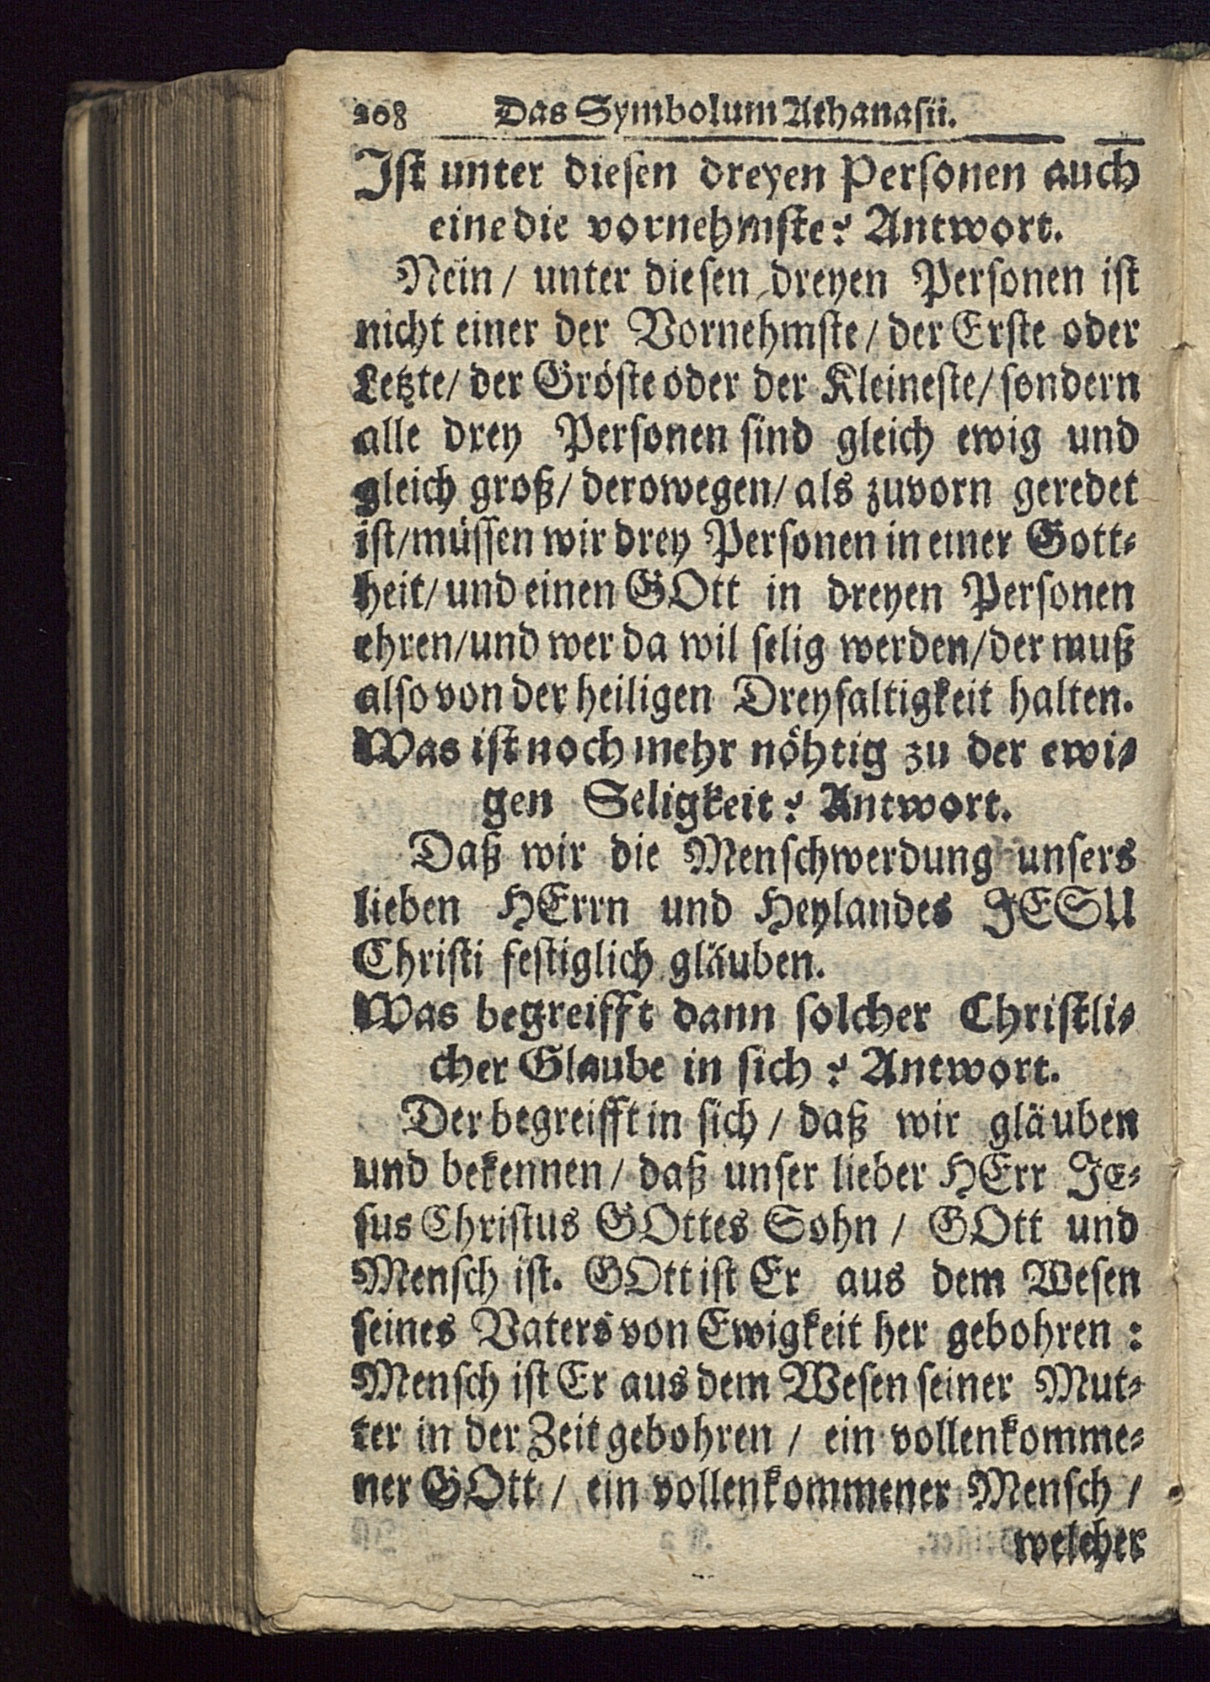 208 Das Symbolum Athanasii.
Ist unter diesen dreyen Personen auch
eine die vornehmste? Antwort.
Nein / unter diesen dreyen Personen ist
nicht einer der Vornehmste / der Erste oder
Letzte / der Gröste oder der Kleineste / sondern
alle drey Personen sind gleich ewig und
gleich groß / derowegen / als zuvorn geredet
ist / müssen wir drey Personen in einer Gott-
heit / und einen GOtt in dreyen Personen
ehren / und wer da wil selig werden / der muß
also von der heiligen Dreyfaltigkeit halten.
Was ist noch mehr nöhtig zu der ewi-
gen Seligkeit? Antwort.
Daß wir die Menschwerdung unsers
lieben HErrn und Heylandes JESU
Christi festiglich gläuben.
Was begreifft dann solcher Christli-
cher Glaube in sich? Antwort.
Der begreifft in sich / daß wir gläuben
und bekennen / daß unser lieber HErr JE-
sus Christus GOttes Sohn / GOtt und
Mensch ist. GOtt ist Er aus dem Wesen
seines Vaters von Ewigkeit her gebohren :
Mensch ist Er aus dem Wesen seiner Mut-
ter in der Zeit gebohren / ein vollenkomme-
ner GOtt / ein vollenkommener Mensch /
welcher